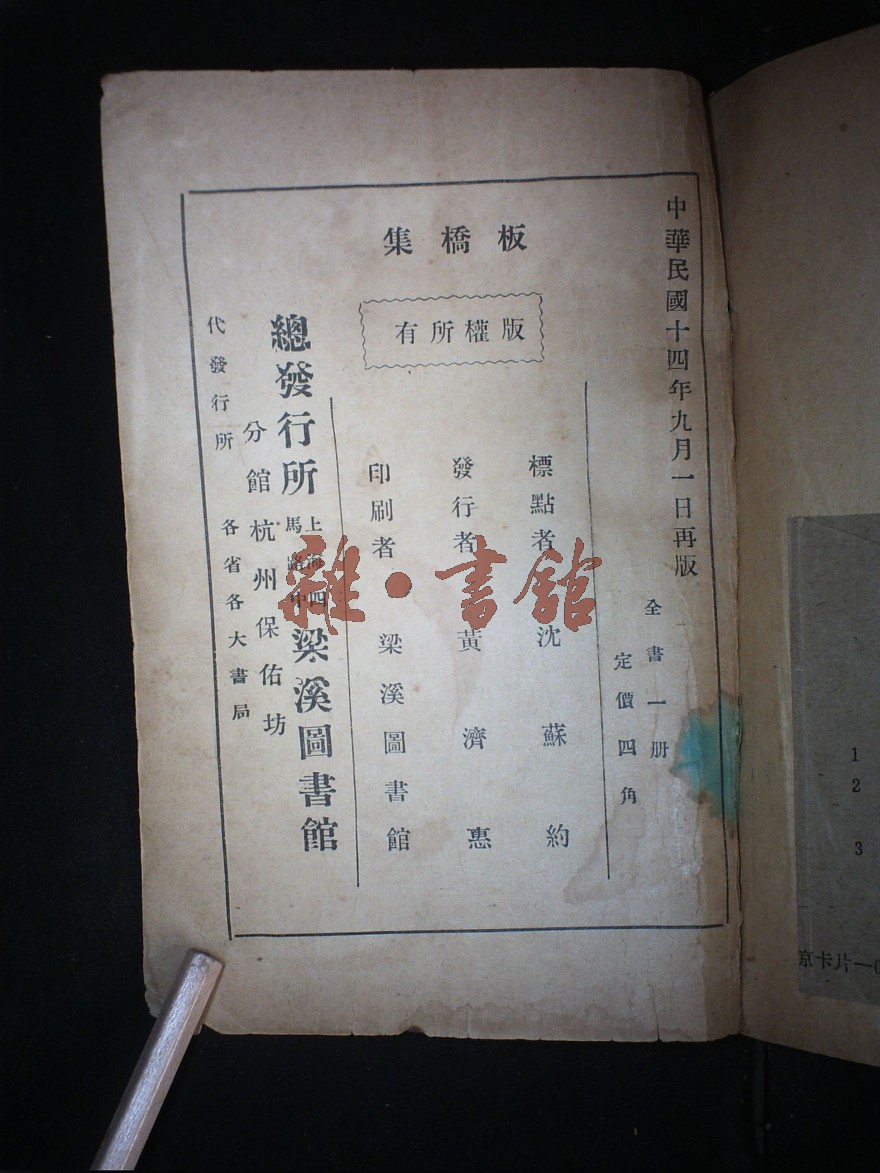 中華民國十四年九月一日再版
全書一册
定價四角
板橋集
版權所有
標點者 沈蘇約
發行者 黃濟惠
印刷者 梁溪圖書館
總發行所 上海四馬路中 梁溪圖書館
分館 杭州保佑坊
代發行所 各省各大書局
雜·書館
1
2
3
京卡片一